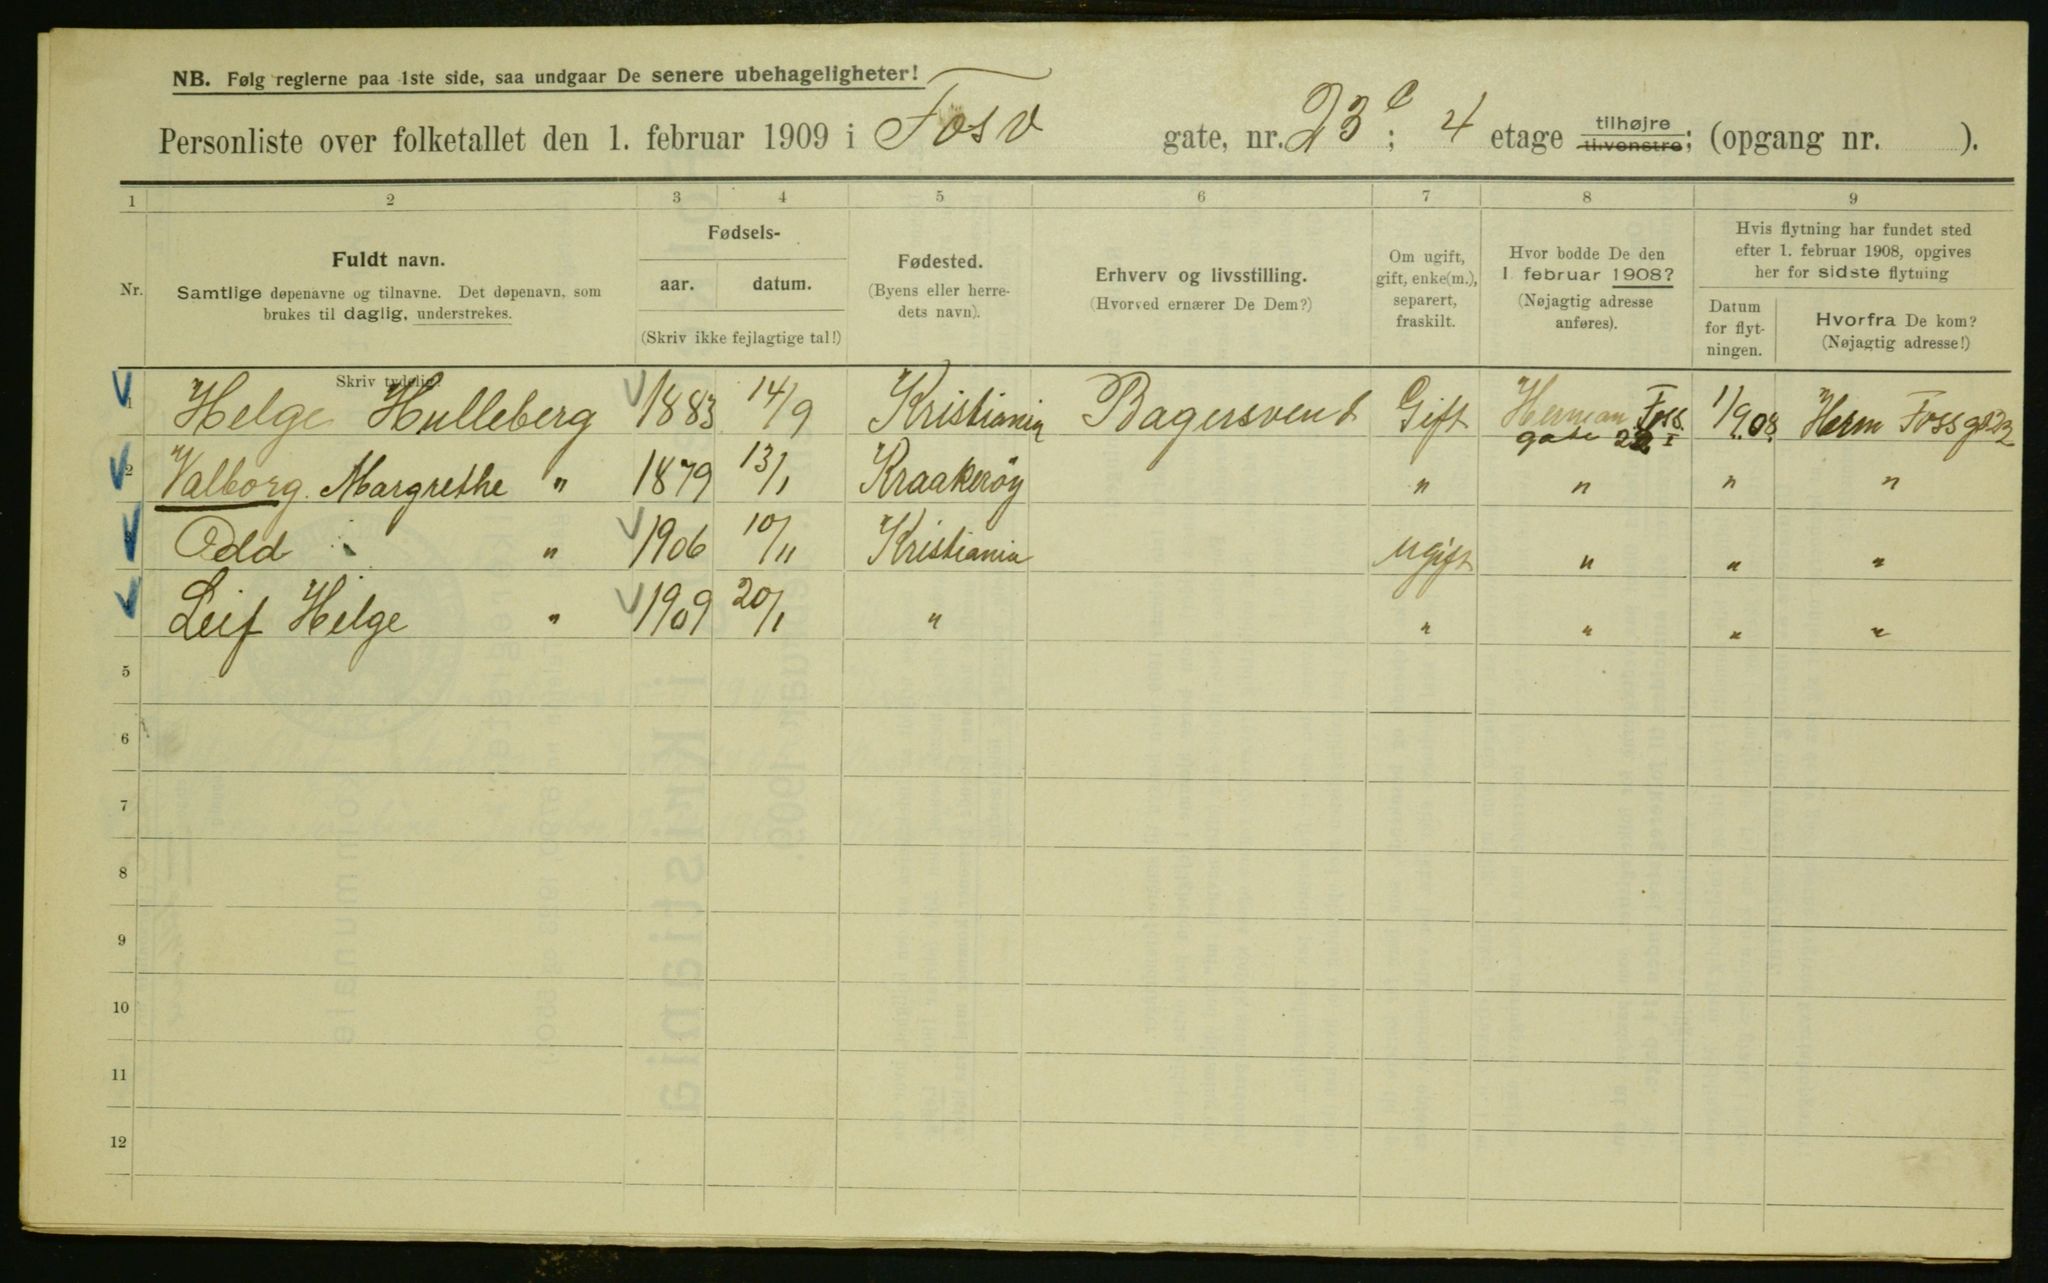 NB. Følg reglerne paa 1ste side, saa undgaar De senere ubehageligheter!
Personliste over folketallet den 1. februar 1909 i Fosv gate, nr. 23 c; 4 etage tilhøjre tilvenstre; (opgang nr. ).
1 2 3 4 5 6 7 8 9
Nr.
Fuldt navn.
Samtlige døpenavne og tilnavne. Det døpenavn, som
brukes til daglig, understrekes.
Skriv tydelig!
Fødsels-
aar. datum.
(Skriv ikke fejlagtige tal!)
Fødested.
(Byens eller herre-
dets navn).
Erhverv og livsstilling.
(Hvorved ernærer De Dem?)
Om ugift,
gift, enke(m.),
separert,
fraskilt.
Hvor bodde De den
1. februar 1908?
(Nøjagtig adresse
anføres).
Hvis flytning har fundet sted
efter 1. februar 1908, opgives
her for sidste flytning
Datum
for flyt-
ningen.
Hvorfra De kom?
(Nøjagtig adresse!)
1 Helge Hulleberg 1883 14/9 Kristiania Bagersvend Gift Herman Foss. gate 22 I 1/9 08 Herm Foss g 22
2 Valborg Margrethe " 1879 13/1 Kraakerøy " " " "
3 Odd " 1906 10/11 Kristiania Ugift " " "
Leif Helge " 1909 20/1 " " " " "
5
6
7
8
9
10
11
12